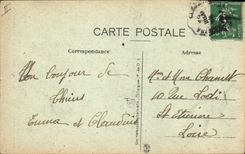 CARTE POSTALE
Correspondance
Adresse
Un bonjour de
Thiers
Emma et Claudius
Mr et Mme Chanut
10 Rue Lodi
St Etienne
Loire